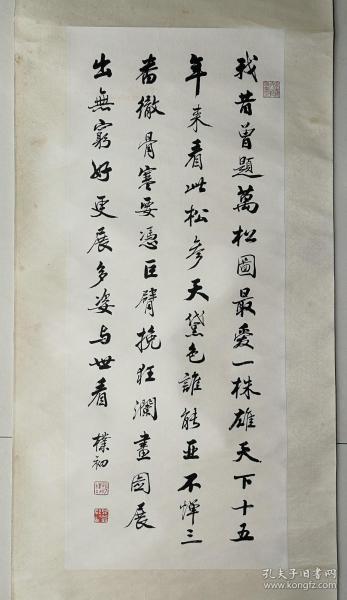 我昔曾題萬松圖最愛一株雄天下十五
年來看此松參天黛色誰能亞不憚三
番徹骨寒要憑巨臂挽狂瀾畫图展
出無窮好更展多姿与世看 樸初
孔夫子旧书网
kongfz.com